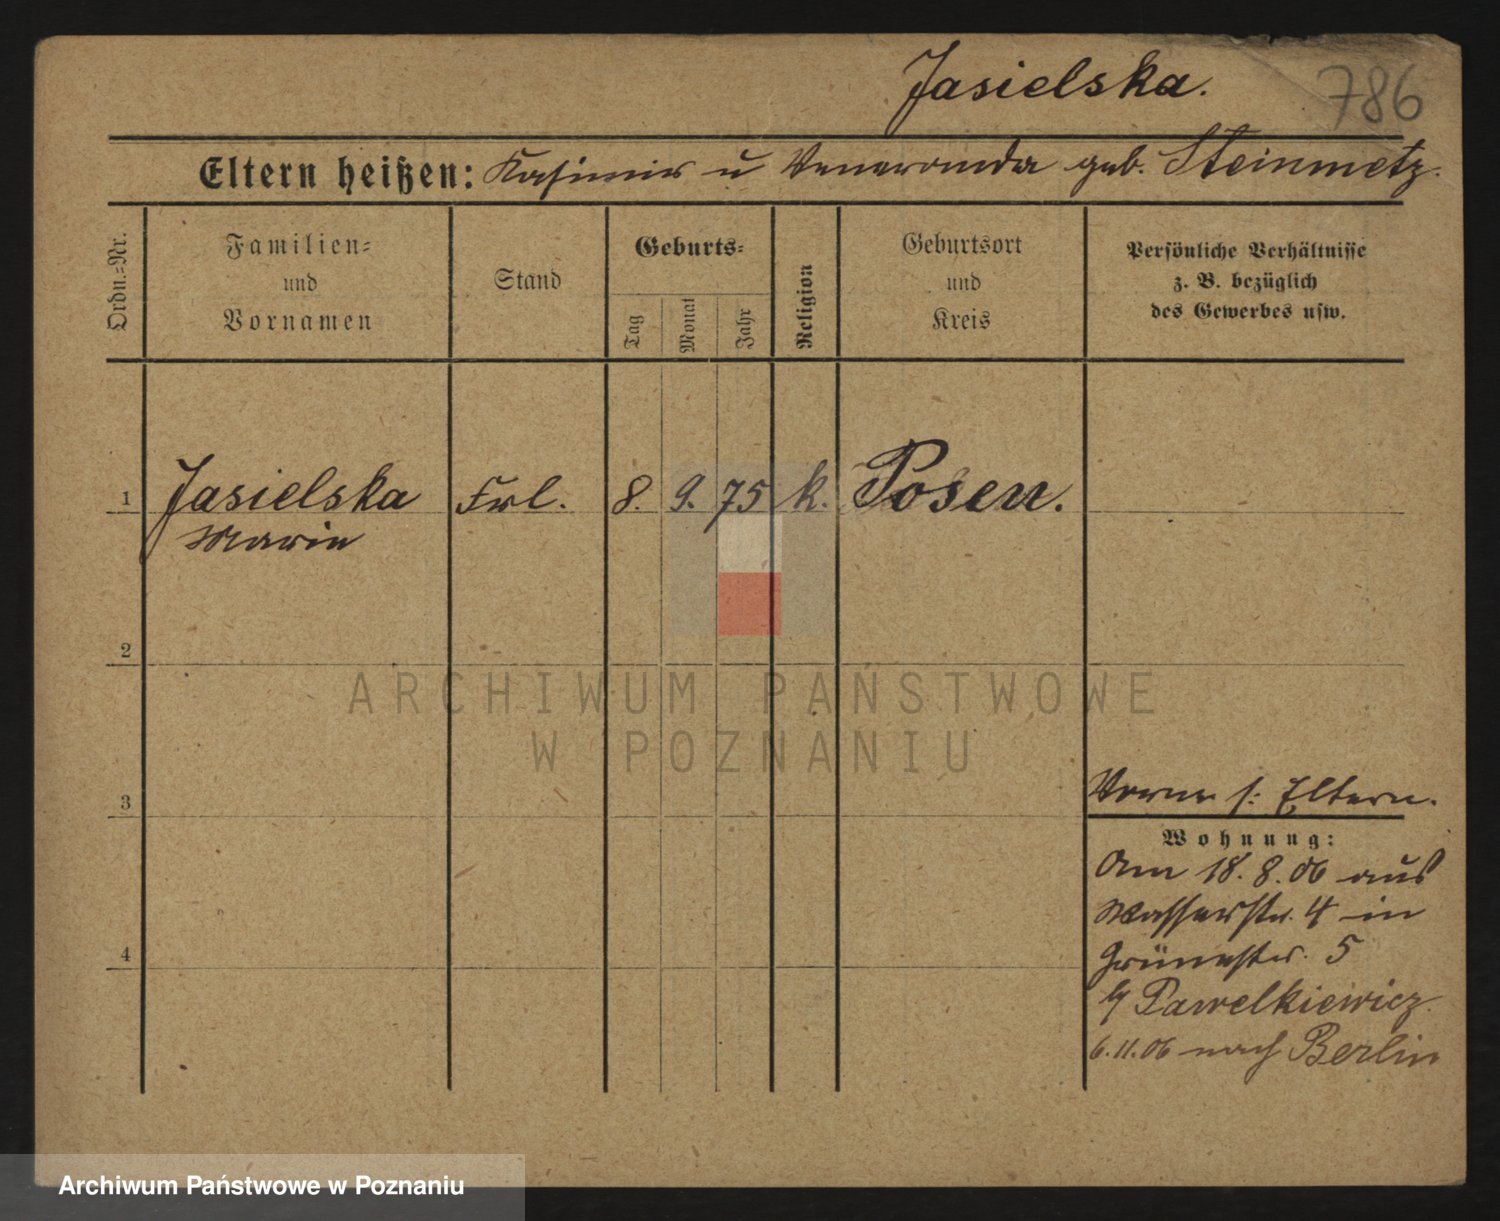 Jasielska.
786
Eltern heißen: Kasimir u Veneranda geb. Steinmetz.
Ordn.=Nr.
Familien=
und
Vornamen
Stand
Geburts=
Tag
Monat
Jahr
Religion
Geburtsort
und
Kreis
Persönliche Verhältnisse
z. B. bezüglich
des Gewerbes usw.
1 Jasielska Frl. 8. 9. 75 k. Posen.
Marie
2
3
Vorne s: Eltern.
Wohnung:
Am 18. 8. 06 aus
Wasserstr. 4 in
Grünestr. 5
b/ Pawelkiewicz.
4
6.11.06 nach Berlin
ARCHIWUM PAŃSTWOWE
W POZNANIU
Archiwum Państwowe w Poznaniu